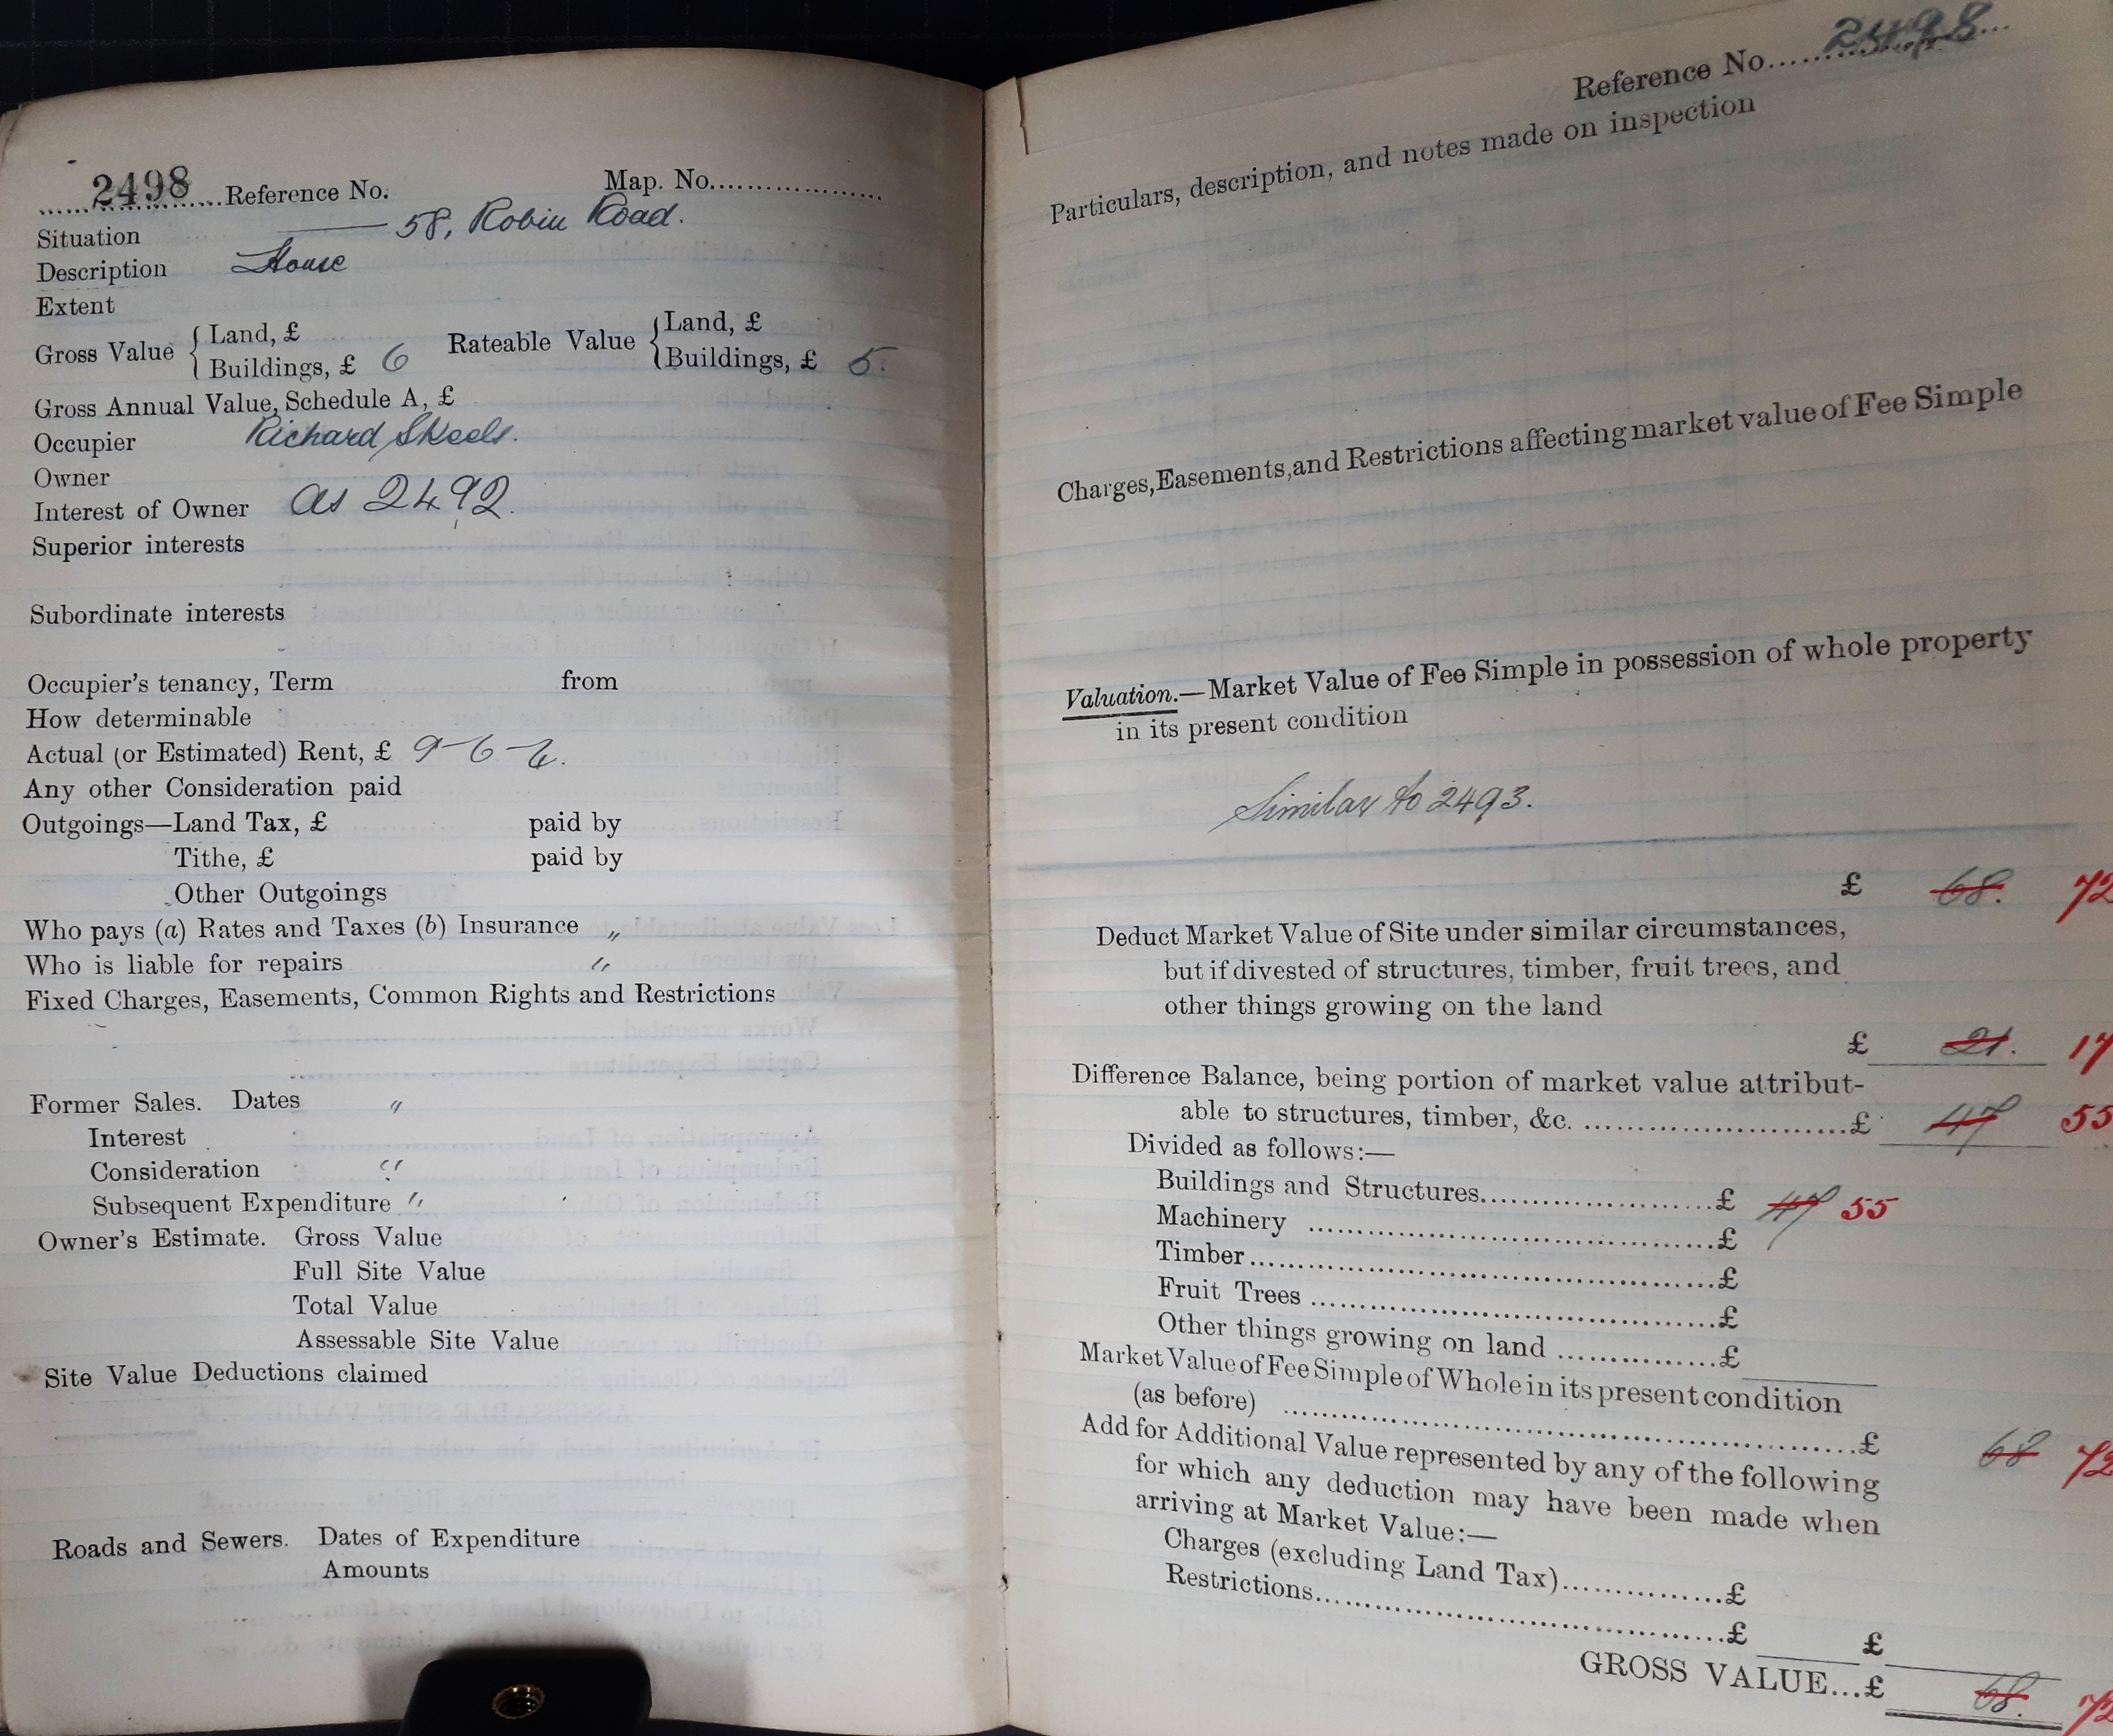 2498 Reference No. Map. No.
Situation 58, Robin Road.
Description House
Extent
Gross Value { Land, £ Rateable Value { Land, £
Buildings, £ 6 Buildings, £ 5.
Gross Annual Value, Schedule A, £
Occupier Richard Skeels.
Owner
Interest of Owner as 2492.
Superior interests
Subordinate interests
Occupier's tenancy, Term from
How determinable
Actual (or Estimated) Rent, £ 9-6-
Any other Consideration paid
Outgoings—Land Tax, £ paid by
Tithe, £ paid by
Other Outgoings
Who pays (a) Rates and Taxes (b) Insurance "
Who is liable for repairs "
Fixed Charges, Easements, Common Rights and Restrictions
Former Sales. Dates "
Interest
Consideration "
Subsequent Expenditure "
Owner's Estimate. Gross Value
Full Site Value
Total Value
Assessable Site Value
Site Value Deductions claimed
Roads and Sewers. Dates of Expenditure
Amounts
Reference No. 2498
Particulars, description, and notes made on inspection
Charges, Easements, and Restrictions affecting market value of Fee Simple
Valuation.—Market Value of Fee Simple in possession of whole property
in its present condition
Similar to 2493.
£ 68. 72
Deduct Market Value of Site under similar circumstances,
but if divested of structures, timber, fruit trees, and
other things growing on the land
£ 21. 17
Difference Balance, being portion of market value attribut-
able to structures, timber, &c. £ 47 55
Divided as follows:—
Buildings and Structures £ 47 55
Machinery £
Timber £
Fruit Trees £
Other things growing on land £
Market Value of Fee Simple of Whole in its present condition
(as before) £ 68 72
Add for Additional Value represented by any of the following
for which any deduction may have been made when
arriving at Market Value:—
Charges (excluding Land Tax) £
Restrictions £ £
GROSS VALUE...£ 68. 72